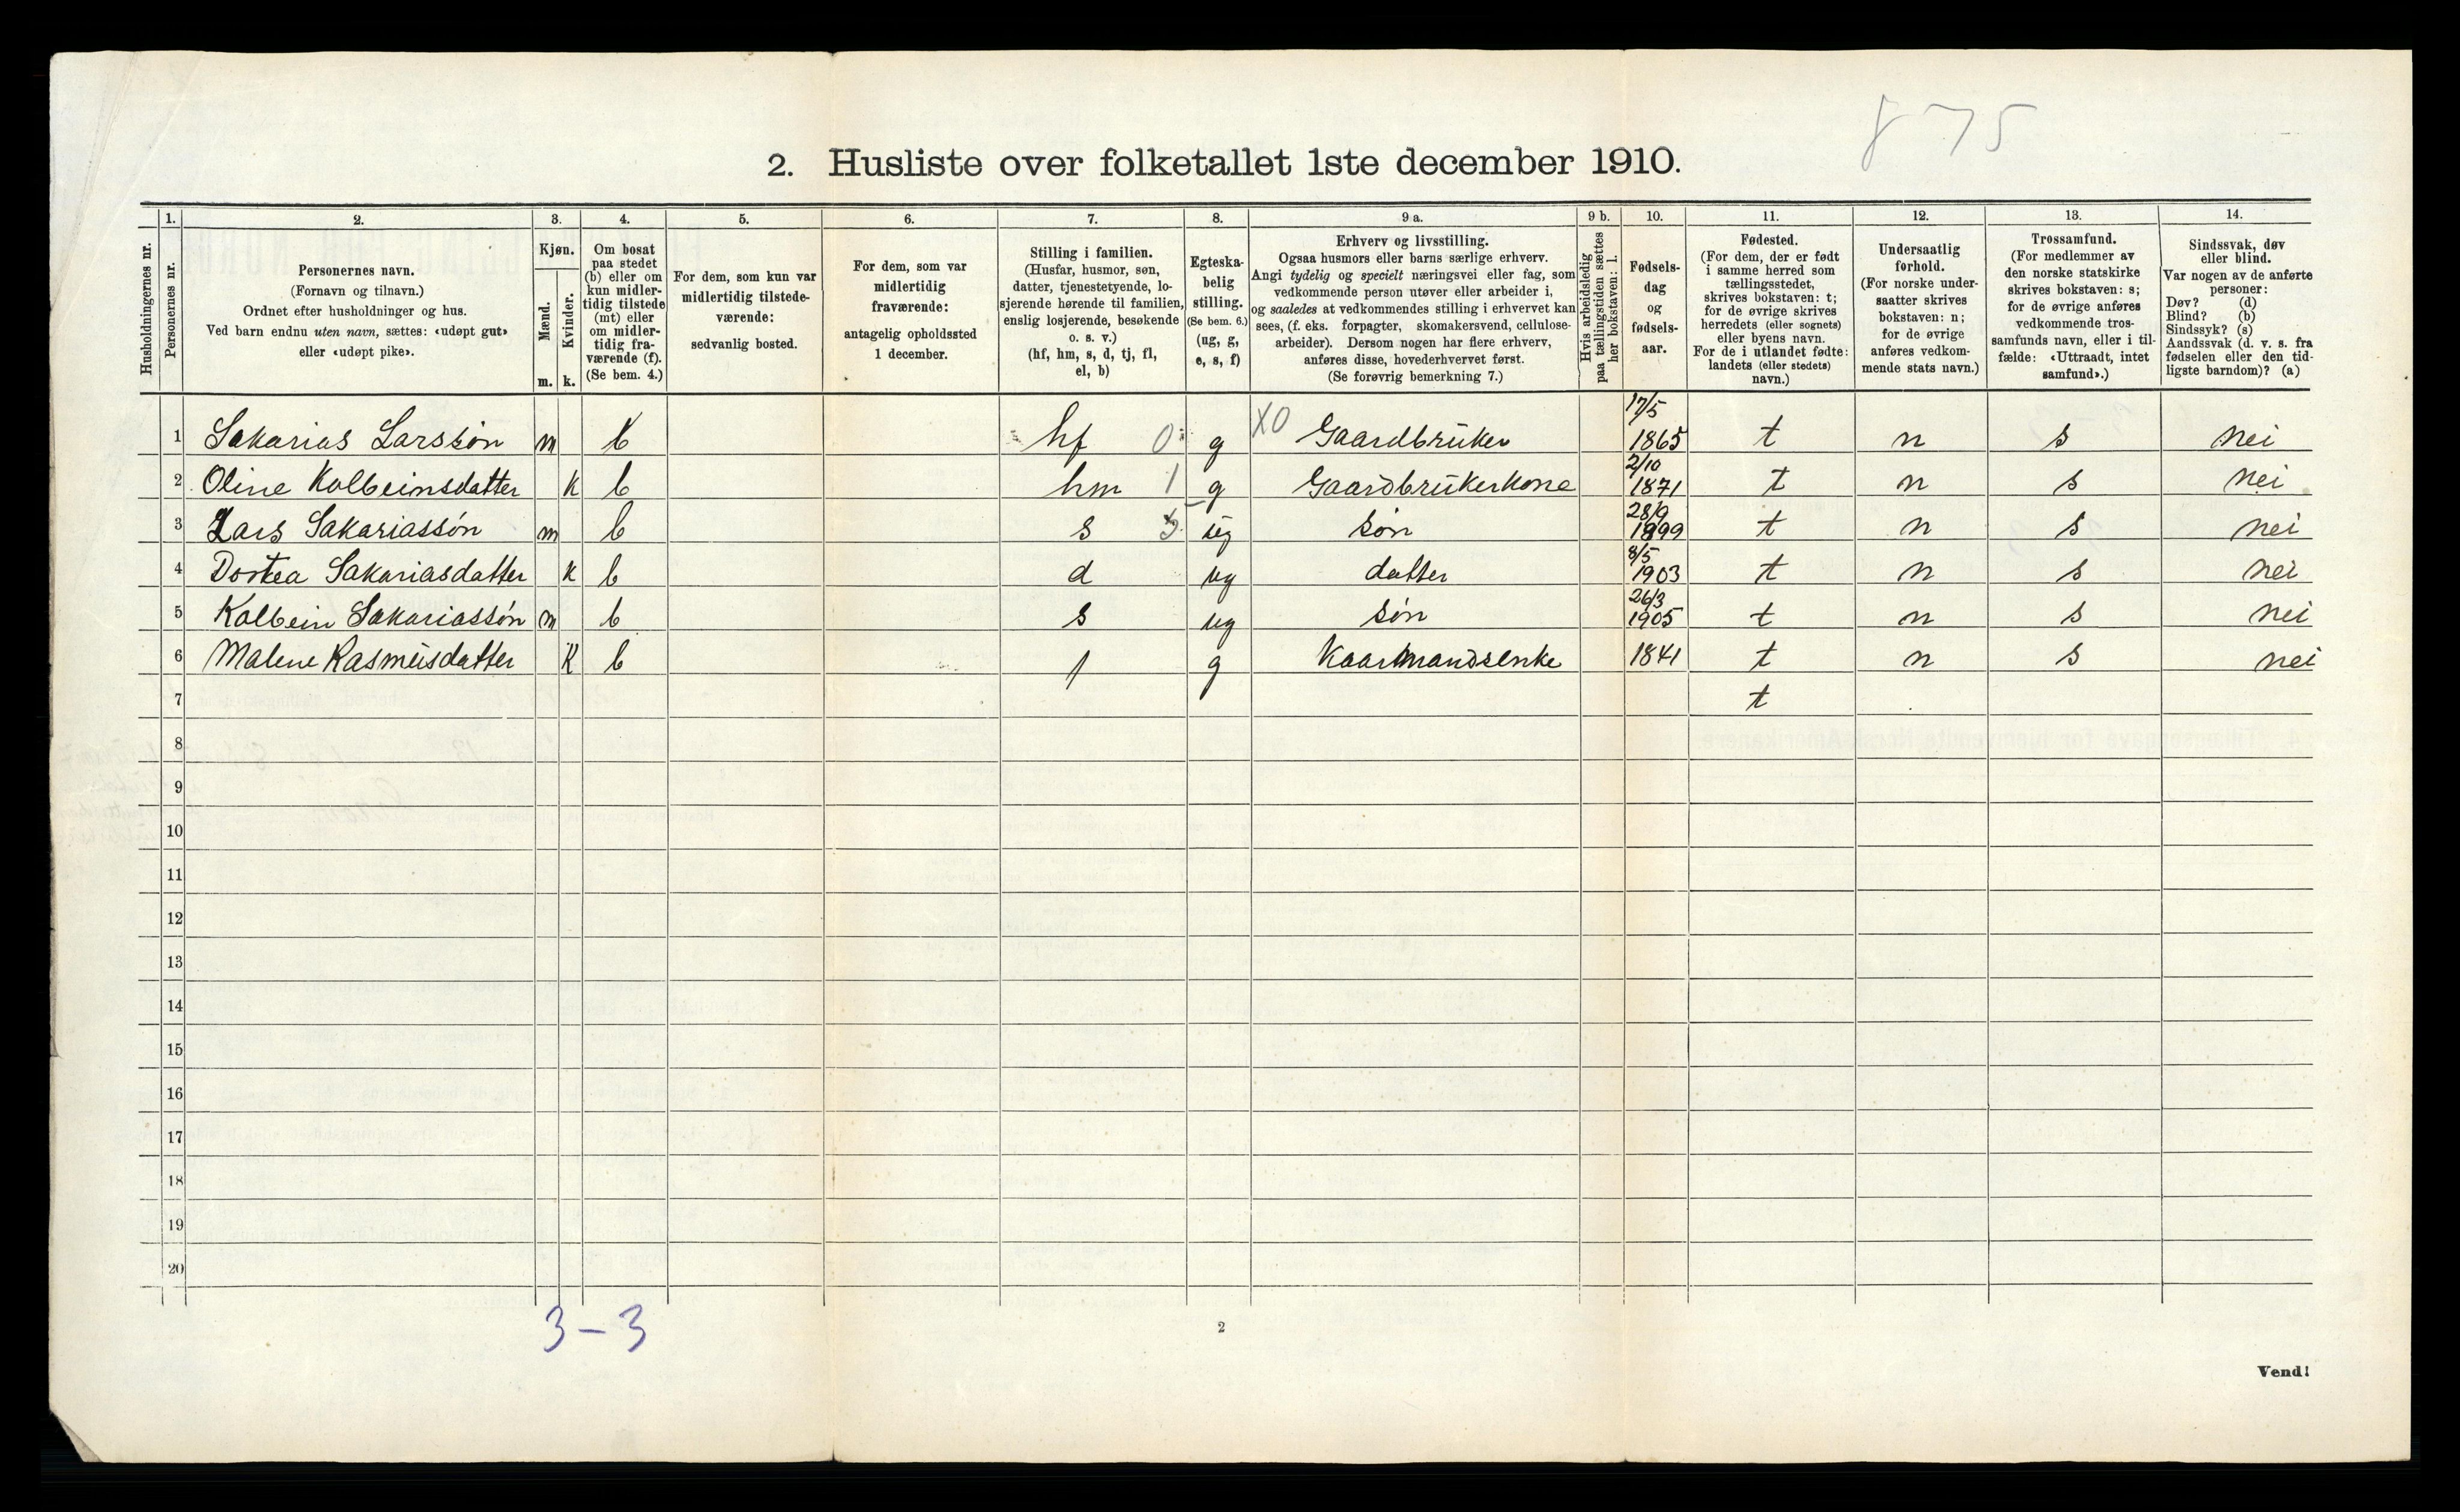 875
2. Husliste over folketallet 1ste december 1910.
Husholdningernes nr.
1. Personernes nr.
2. Personernes navn.
(Fornavn og tilnavn.)
Ordnet efter husholdninger og hus.
Ved barn endnu uten navn, sættes: «udøpt gut»
eller «udøpt pike».
3. Kjøn.
Mænd. m.
Kvinder. k.
4. Om bosat
paa stedet
(b) eller om
kun midler-
tidig tilstede
(mt) eller
om midler-
tidig fra-
værende (f).
(Se bem. 4.)
5. For dem, som kun var
midlertidig tilstede-
værende:
sedvanlig bosted.
6. For dem, som var
midlertidig
fraværende:
antagelig opholdssted
1 december.
7. Stilling i familien.
(Husfar, husmor, søn,
datter, tjenestetyende, lo-
sjerende hørende til familien,
enslig losjerende, besøkende
o. s. v.)
(hf, hm, s, d, tj, fl,
el, b)
8. Egteska-
belig
stilling.
(Se bem. 6.)
(ug, g,
e, s, f)
9 a. Erhverv og livsstilling.
Ogsaa husmors eller barns særlige erhverv.
Angi tydelig og specielt næringsvei eller fag, som
vedkommende person utøver eller arbeider i,
og saaledes at vedkommendes stilling i erhvervet kan
sees, (f. eks. forpagter, skomakersvend, cellulose-
arbeider). Dersom nogen har flere erhverv,
anføres disse, hovederhvervet først.
(Se forøvrig bemerkning 7.)
9 b. Hvis arbeidsledig
paa tællingstiden sættes
her bokstaven: l.
10. Fødsels-
dag
og
fødsels-
aar.
11. Fødested.
(For dem, der er født
i samme herred som
tællingsstedet,
skrives bokstaven: t;
for de øvrige skrives
herredets (eller sognets)
eller byens navn.
For de i utlandet fødte:
landets (eller stedets)
navn.)
12. Undersaatlig
forhold.
(For norske under-
saatter skrives
bokstaven: n;
for de øvrige
anføres vedkom-
mende stats navn.)
13. Trossamfund.
(For medlemmer av
den norske statskirke
skrives bokstaven: s;
for de øvrige anføres
vedkommende tros-
samfunds navn, eller i til-
fælde: «Uttraadt, intet
samfund».)
14. Sindssvak, døv
eller blind.
Var nogen av de anførte
personer:
Døv? (d)
Blind? (b)
Sindssyk? (s)
Aandssvak (d. v. s. fra
fødselen eller den tid-
ligste barndom)? (a)
1 Sakarias Larssøn m b hf 0 g X0 Gaardbruker 17/5 1865 t n s nei
2 Oline Kolbeinsdatter k b hm 1 g Gaardbrukerkone 2/10 1871 t n s nei
3 Lars Sakariassøn m b s 3 ug søn 28/9 1899 t n s nei
4 Dortea Sakariasdatter k b d ug datter 8/5 1903 t n s nei
5 Kolbein Sakariassøn m b s ug søn 26/3 1905 t n s nei
6 Malene Rasmusdatter k b g Kaarmandsenke 1841 t n s nei
7 t
8
9
10
11
12
13
14
15
16
17
18
19
20
3-3
2
Vend!